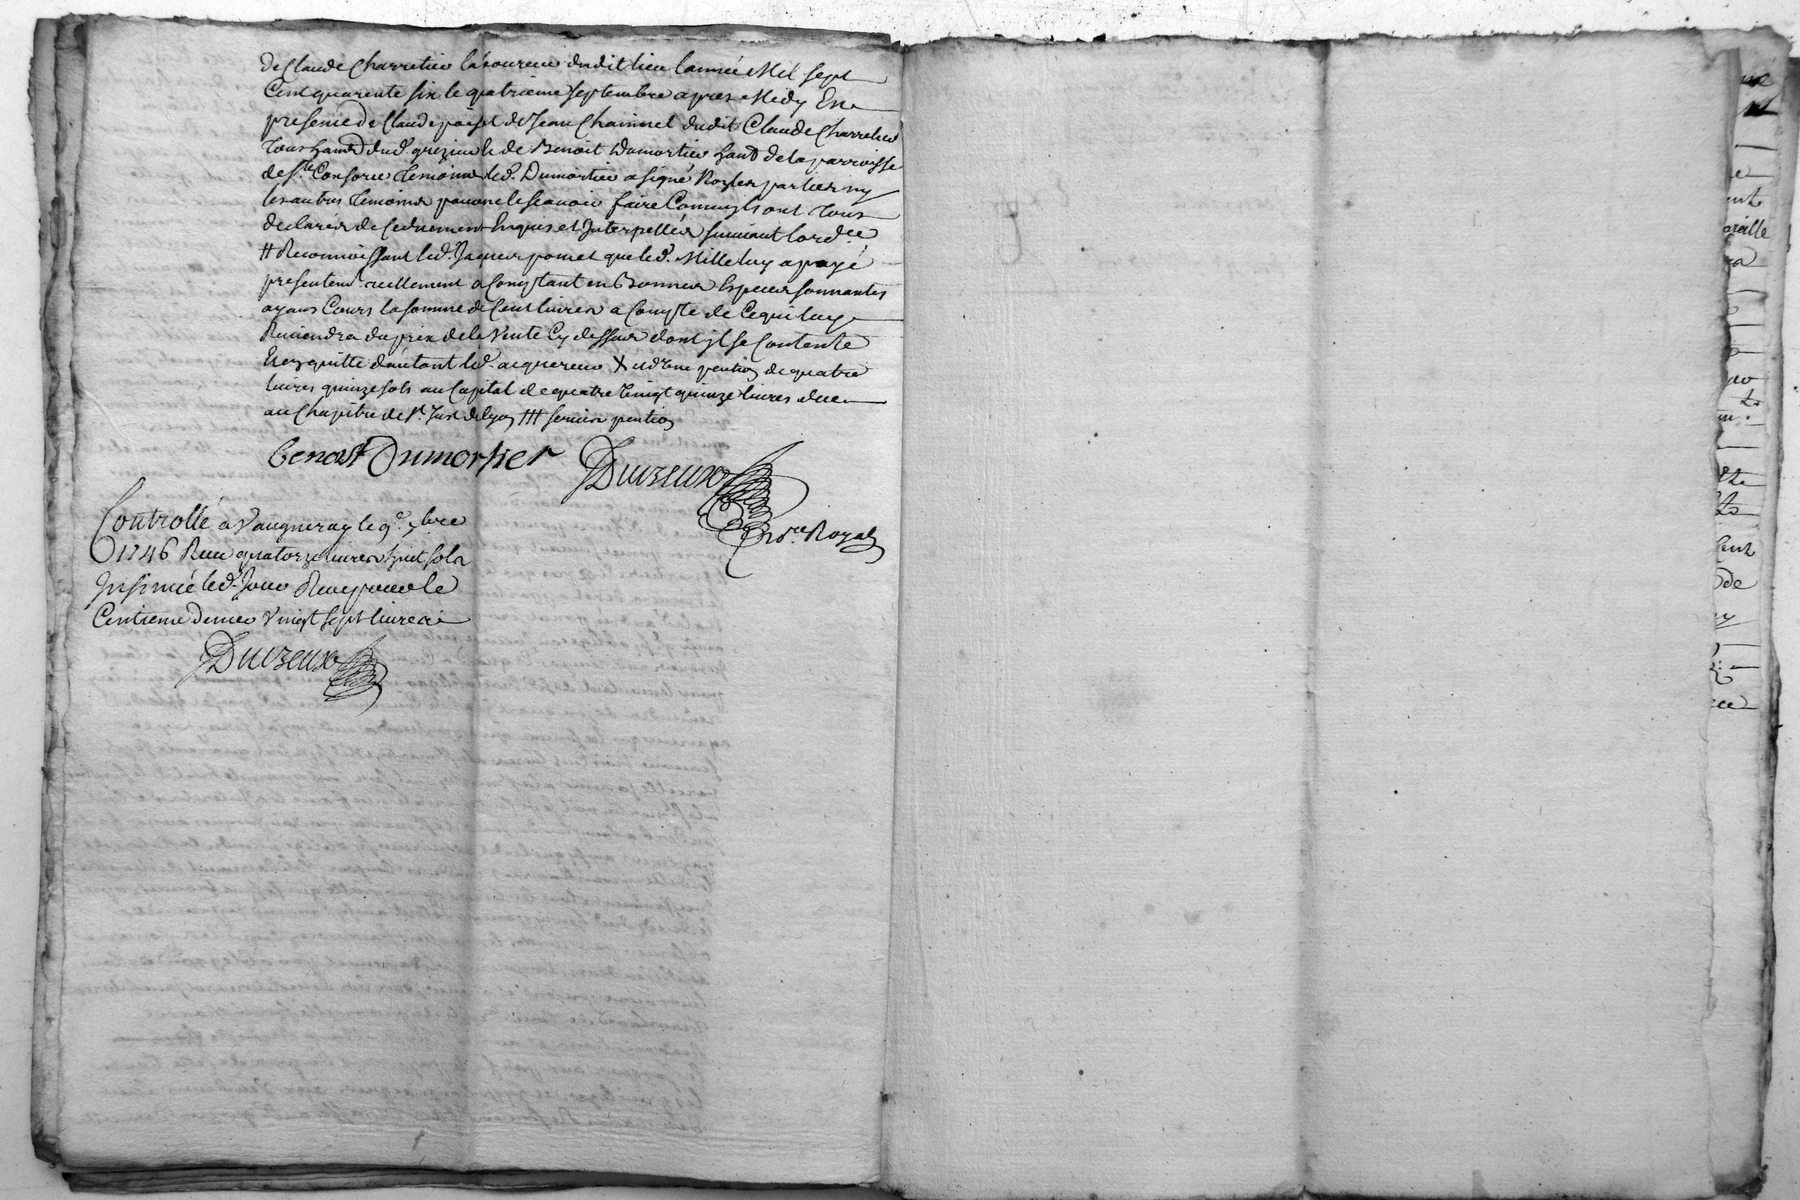 de Claude Charretier laboureur dudit lieu l'année Mil sept
Cent quarente six le quatrieme septembre apres Midy En
presence de Claude de Jean Chainnel dudit Claude Charretier
Tous hant dud. grezieu & de Benoit Dumortier hant de la parroisse
de Ste Consorce Temoins led. Dumortier a signé Non les parties ny
les autres Temoins pour ne le scavoir faire Comm' jls ont Tous
declarés de ce duement Enquis et Interpellés suivant l'ord.ce
# Reconnoissant led. Jaques poncet que led. Millelury a payé
presentem.t reellement a Comptant en Bonnes Especes sonnantes
ayans Cours la somme de Cent livres a Compte de Ce qui luy
Reviendra du prix de la Vente Cy dessus dont jl se Contente
En quitte d'autant led. acquereur X und'une pention de quatre
livres quinze sols au Capital de quatre Vingt quinze livres due
au Chapitre de St. Just de lyon ### servis pention
benoist Dumortier Duizeux
no.re Royal
Controllé a Vaugneray le 9e. 7bre
1746 Reçu quatorze livres huit sols
Insinué led. Jour Reçu pour le
Centieme denier Vingt sept livres
Duizeux